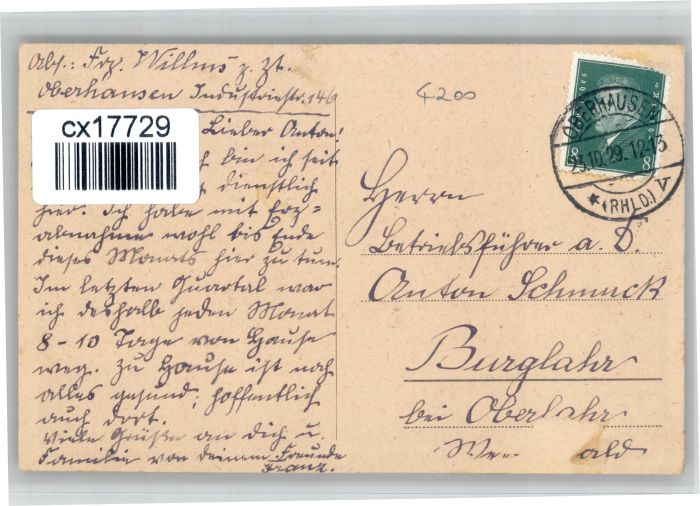 Abs.: Frz. Willms z. Zt.
Oberhausen Industriestr. 146
4200
cx17729
Lieber Anton!
bin ich seit
dienstlich
hier. Ich habe mit Erz=
abnahme wohl bis Ende
dieses Monats hier zu tun.
Im letzten Quartal war
ich deshalb jeden Monat
8-10 Tage von Hause
weg. Zu Hause ist noch
alles gesund; hoffentlich
auch dort.
Viele Grüße an Dich u.
Familie von deinem Freunde
Franz.
OBERHAUSEN
25.10.29.12-13
* (RHLD.) V
8 8
Herrn
Betriebsführer a. D.
Anton Schmuck
Burglahr
bei Oberlahr
We ald